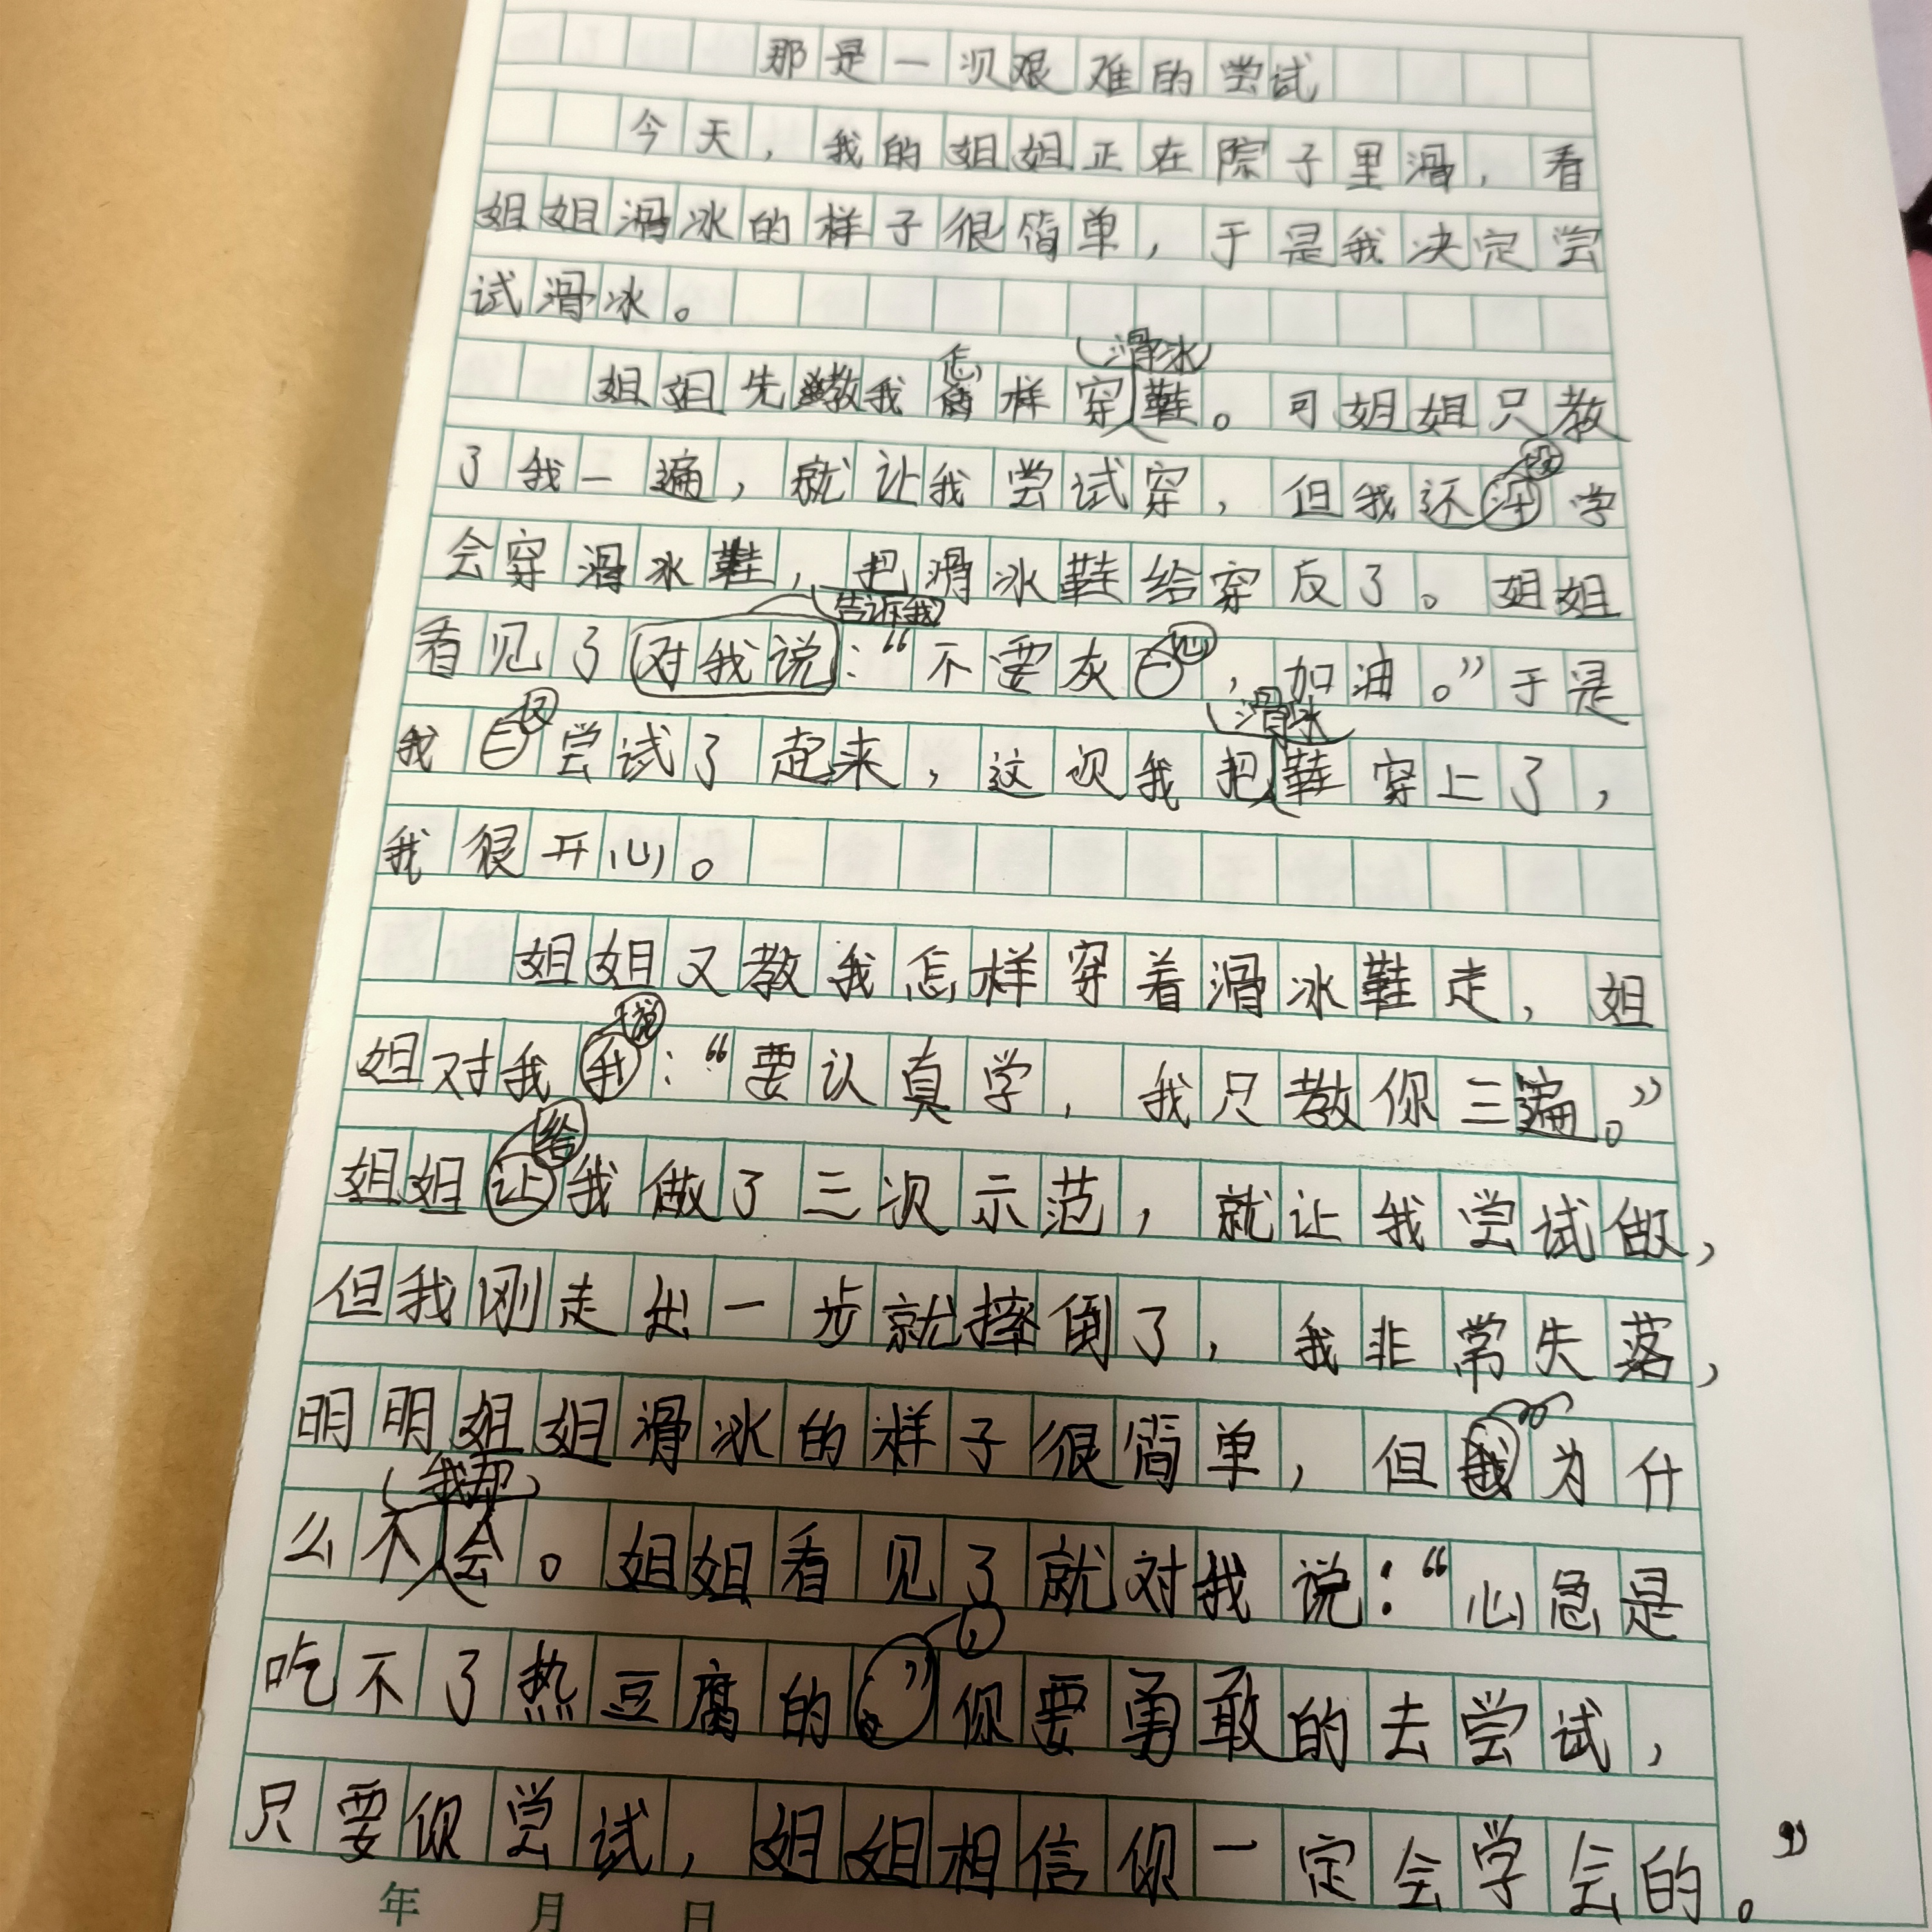 那是一次艰难的尝试
今天，我的姐姐正在院子里滑，看
姐姐滑冰的样子很简单，于是我决定尝
试滑冰。
姐姐先教我怎样穿滑冰鞋。可姐姐只教
了我一遍，就让我尝试穿，但我还没学
会穿滑冰鞋，把滑冰鞋给穿反了。姐姐
看见了告诉我：“不要灰心，加油。”于是
我又尝试了起来，这次我把滑冰鞋穿上了，
我很开心。
姐姐又教我怎样穿着滑冰鞋走，姐
姐对我说：“要认真学，我只教你三遍。”
姐姐给我做了三次示范，就让我尝试做，
但我刚走出一步就摔倒了，我非常失落，
明明姐姐滑冰的样子很简单，但为什
么我却不会。姐姐看见了就对我说：“心急是
吃不了热豆腐的，你要勇敢的去尝试，
只要你尝试，姐姐相信你一定会学会的。”
年 月 日